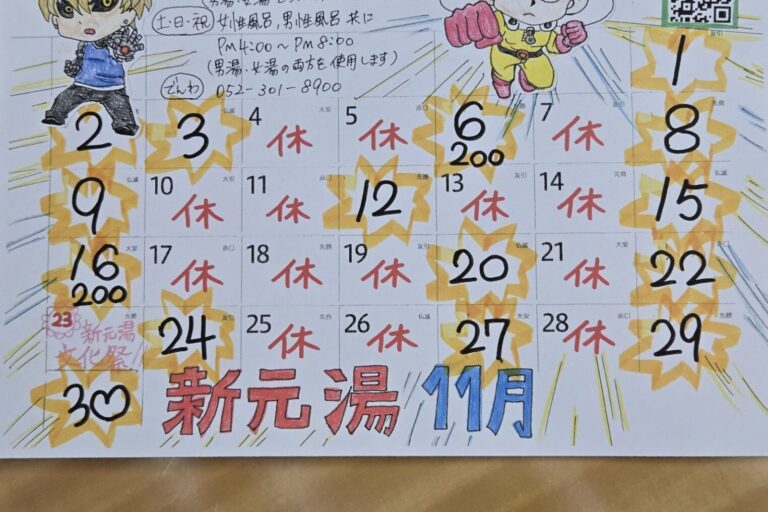 土・日・祝 女性風呂,男性風呂 共に
PM4:00〜PM8:00
(男湯・女湯の両方を使用します)
でんわ 052-301-8900
1
2 3 4 休 5 休 6 200 7 休 8
9 10 休 11 休 12 13 休 14 休 15
16 200 17 休 18 休 19 休 20 21 休 22
23 新元湯 文化祭! 24 25 休 26 休 27 28 休 29
30
新元湯 11月